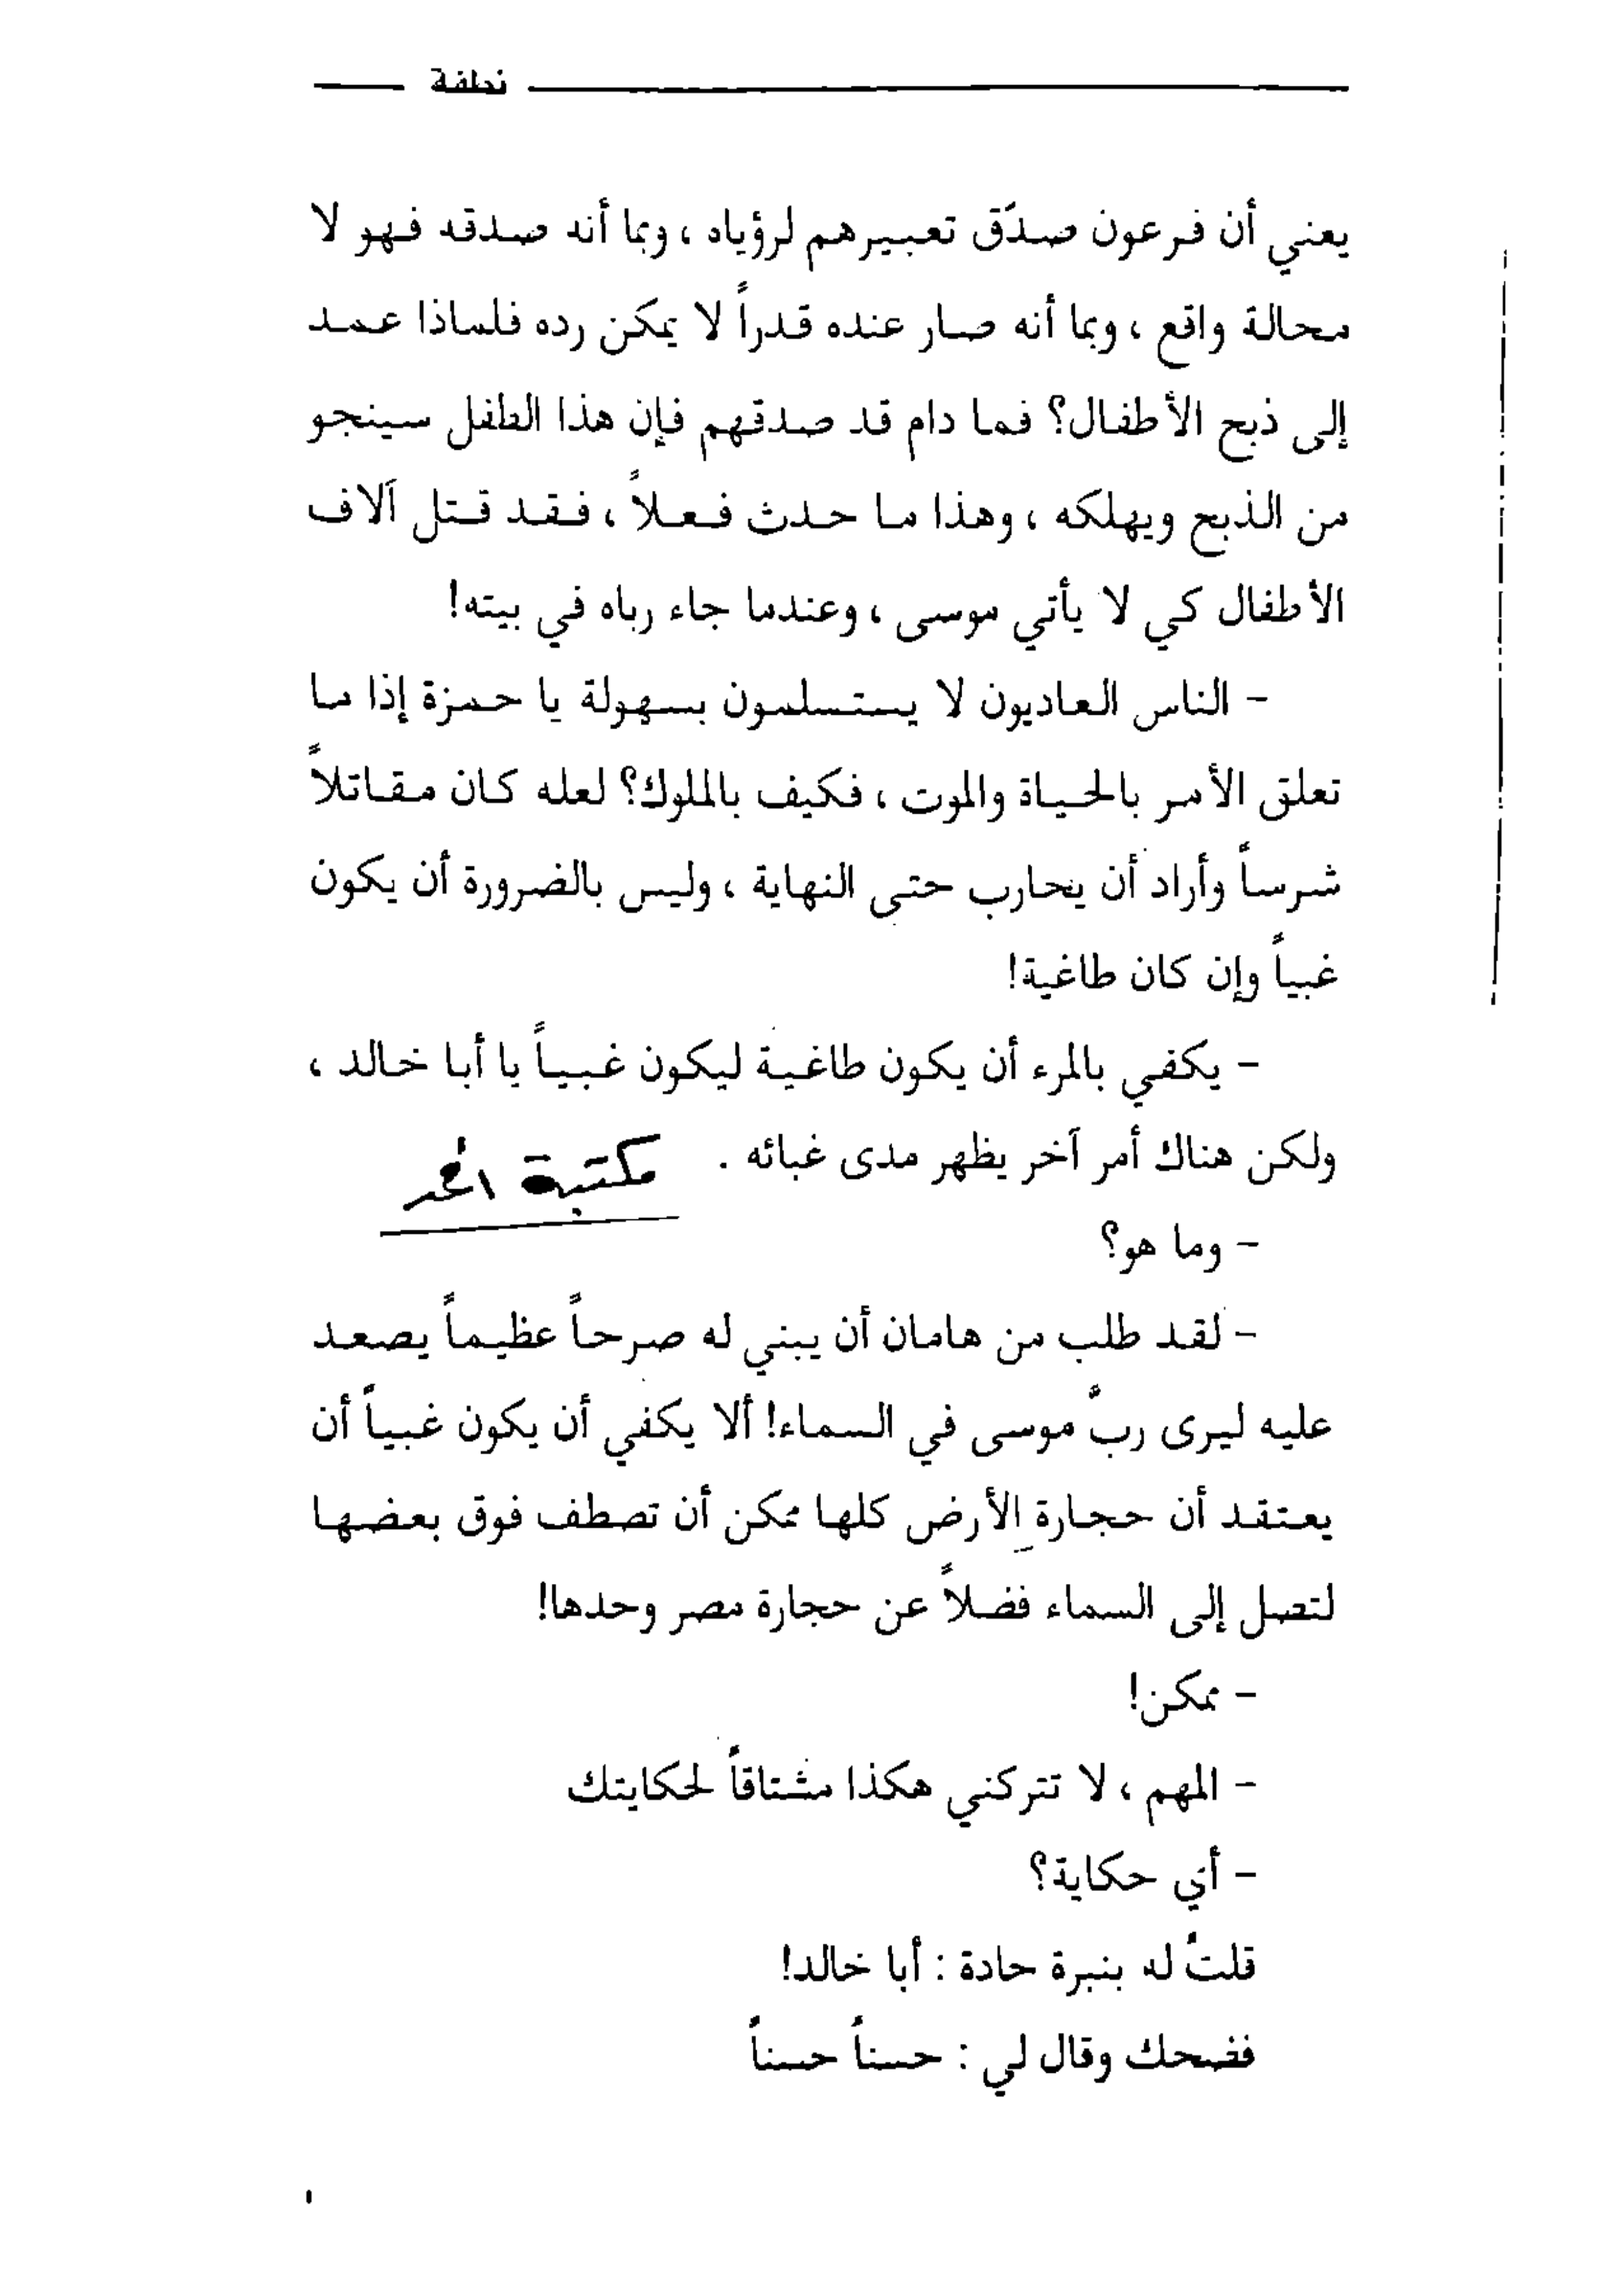 نطفة
يعني أن فرعون صدّق تعبيرهم لرؤياه ، وبما أنه صدقه فهو لا
محالة واقع ، وبما أنه صار عنده قدراً لا يمكن رده فلماذا عمد
إلى ذبح الأطفال؟ فما دام قد صدقهم فإن هذا الطفل سينجو
من الذبح ويهلكه ، وهذا ما حدث فعلاً ، فقد قتل آلاف
الأطفال كي لا يأتي موسى ، وعندما جاء رباه في بيته!
- الناس العاديون لا يستسلمون بسهولة يا حمزة إذا ما
تعلق الأمر بالحياة والموت ، فكيف بالملوك؟ لعله كان مقاتلاً
شرساً وأراد أن يحارب حتى النهاية ، وليس بالضرورة أن يكون
غبياً وإن كان طاغية!
- يكفي بالمرء أن يكون طاغية ليكون غبياً يا أبا خالد ،
ولكن هناك أمر آخر يظهر مدى غبائه .
مكتبة
- وما هو؟
- لقد طلب من هامان أن يبني له صرحاً عظيماً يصعد
عليه ليرى ربَّ موسى في السماء! ألا يكفي أن يكون غبياً أن
يعتقد أن حجارة الأرض كلها ممكن أن تصطف فوق بعضها
لتصل إلى السماء فضلاً عن حجارة مصر وحدها!
- ممكن!
- المهم ، لا تتركني هكذا مشتاقاً لحكايتك
- أي حكاية؟
قلتُ له بنبرة حادة : أبا خالد!
فضحك وقال لي : حسناً حسناً